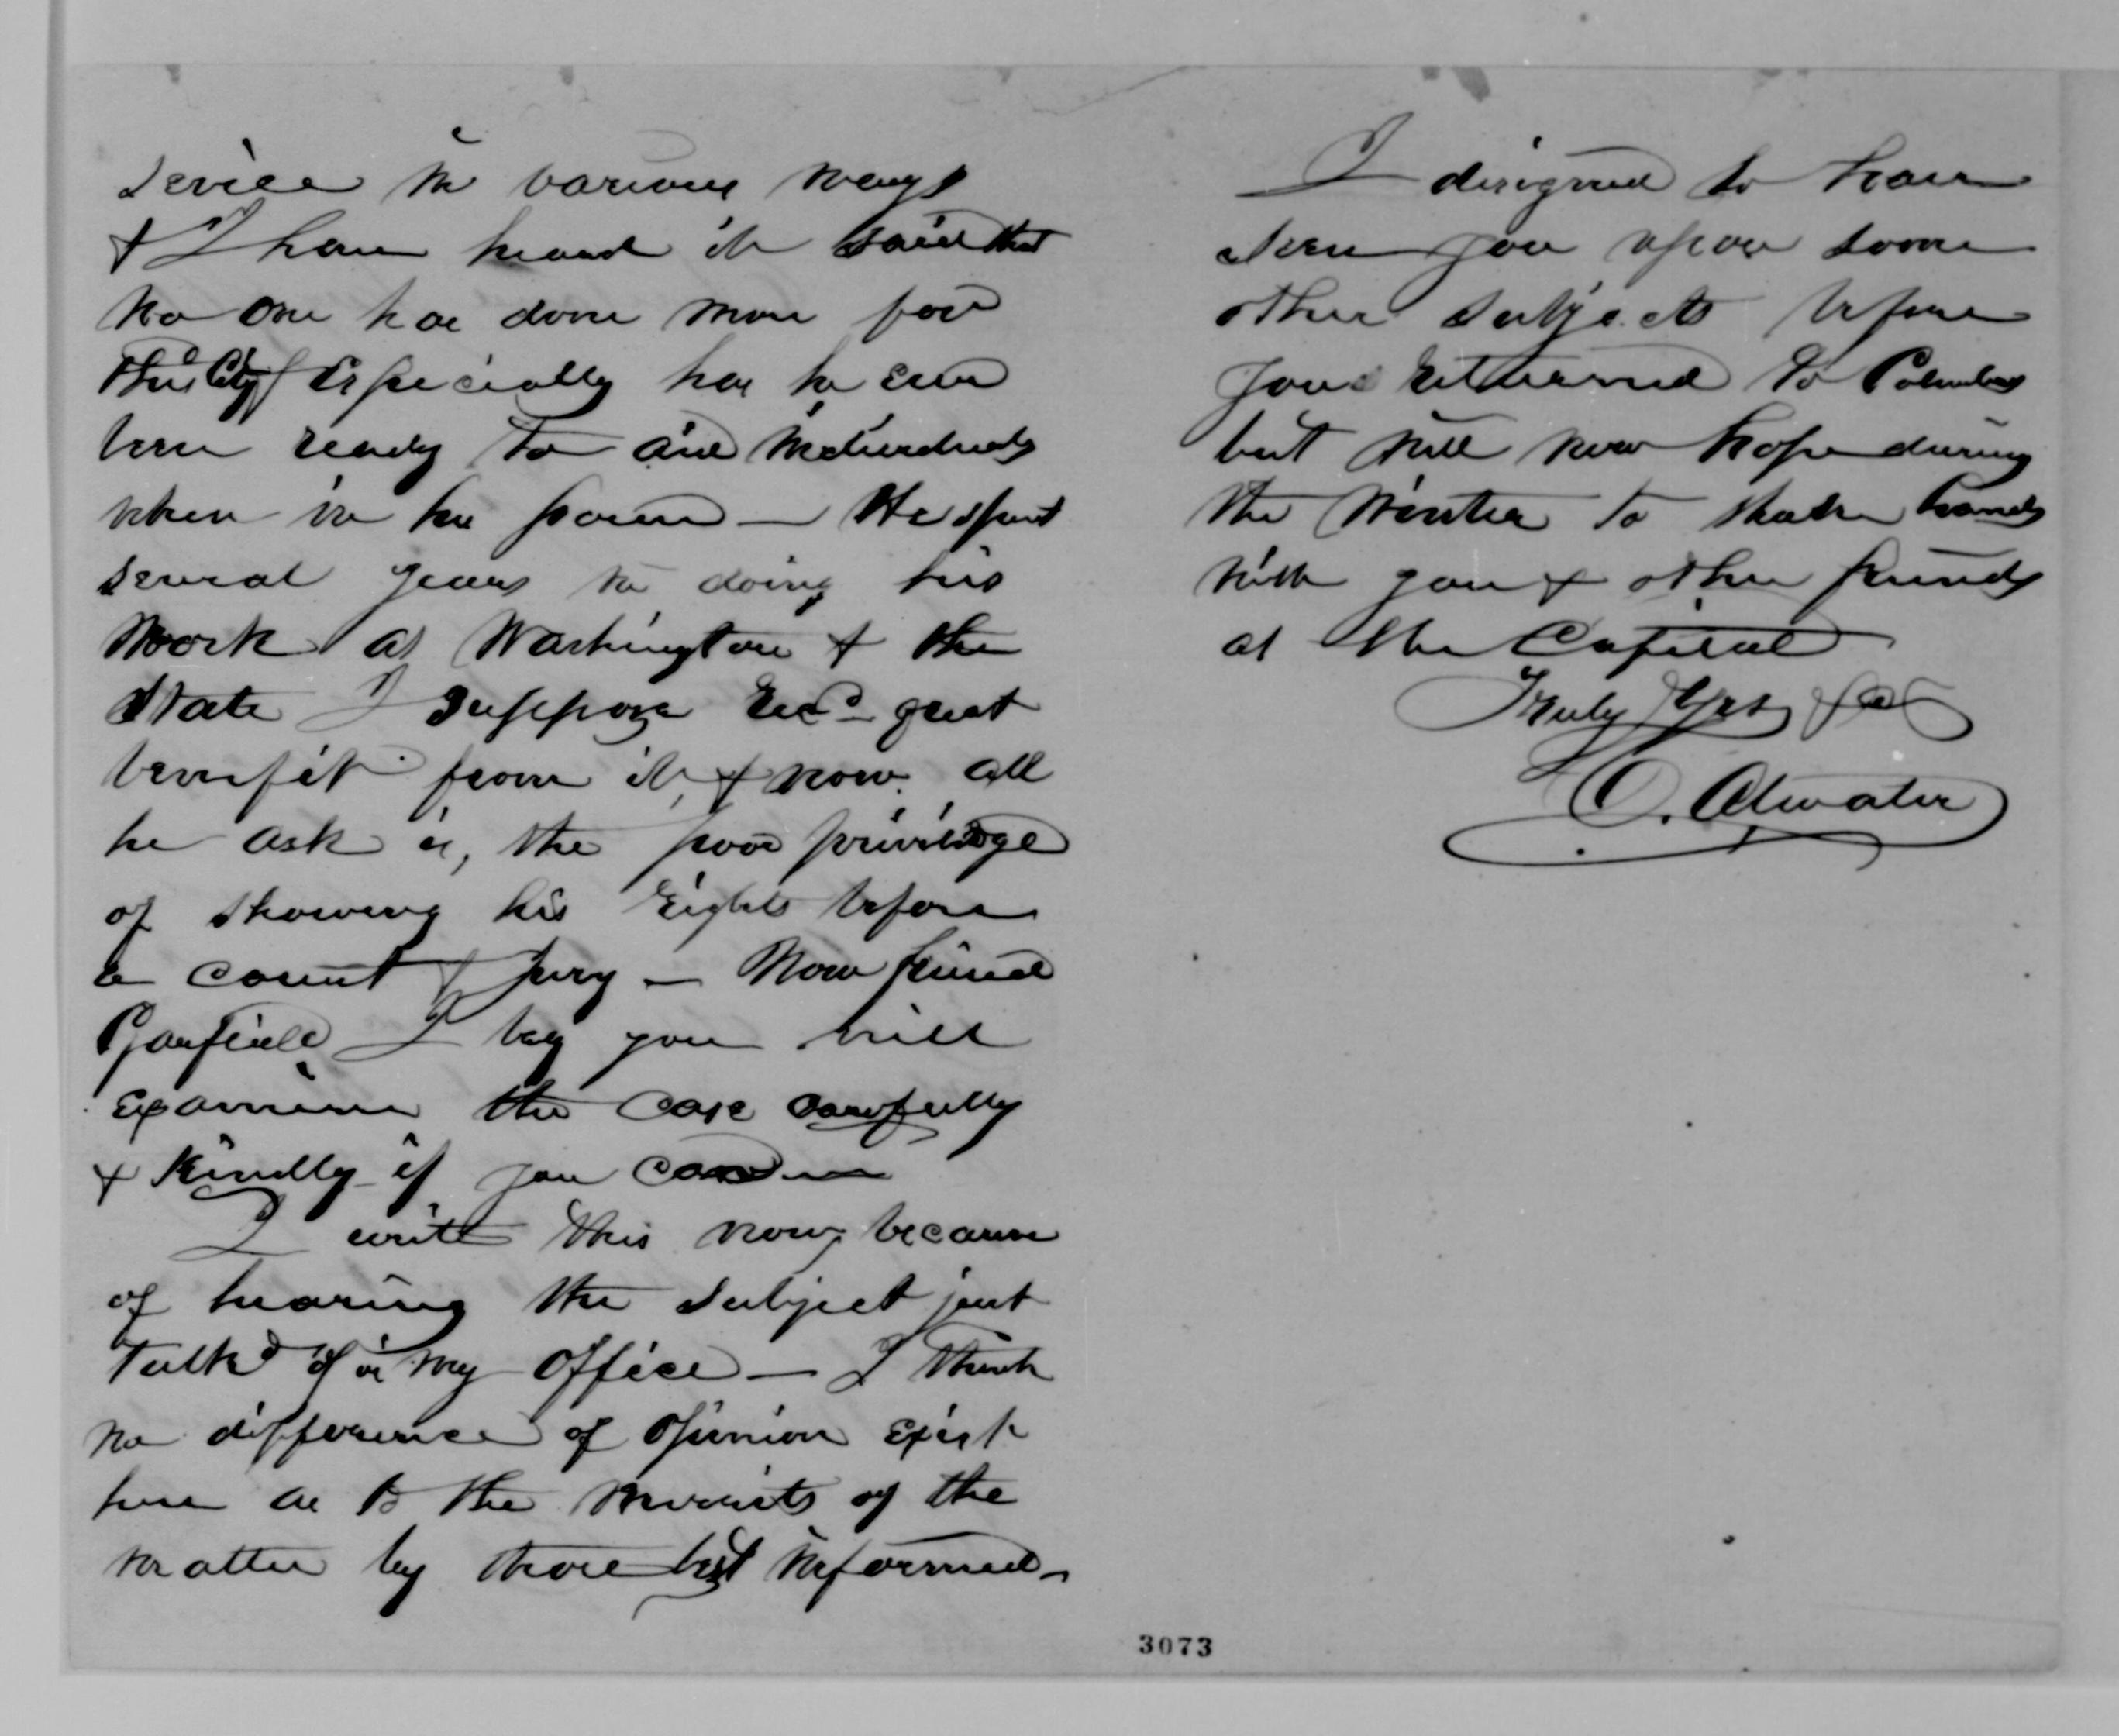 service in various ways
& I have heard it said that
no one has done more for
this City Especially has he ever
been ready to aid individuals
when in his power — He spent
several years in doing his
Work at Washington & the
State I suppose Recd great
benefit from it, & now all
he ask is, the poor privilege
of showing his rights before
a Court & Jury — Now friend
Garfield I beg you will
Examine the Case carefully
& Kindly if you can —
I write this now because
of hearing the subject just
talkd of in my office — I think
no difference of opinion exist
here as to the merits of the
matter by those best informed —
I designed to have
seen you upon some
other subjects before
you returned to Columbus
but will now hope during
the Winter to shake hands
with you & other friends
at the Capital
Truly Yrs &c
O. Atwater
3073